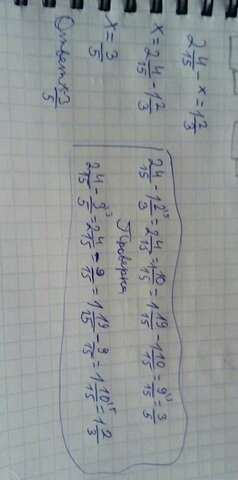 2 4/15 - x = 1 2/3
x = 2 4/15 - 1 2/3
x = 3/5
Ответ: x 3/5
2 4/15 - 1 2/3 = 2 4/15 - 1 10/15 = 1 19/15 - 1 10/15 = 9/15 = 3/5
Проверка
2 4/15 - 3/5 = 2 4/15 - 9/15 = 1 19/15 - 9/15 = 1 10/15 = 1 2/3